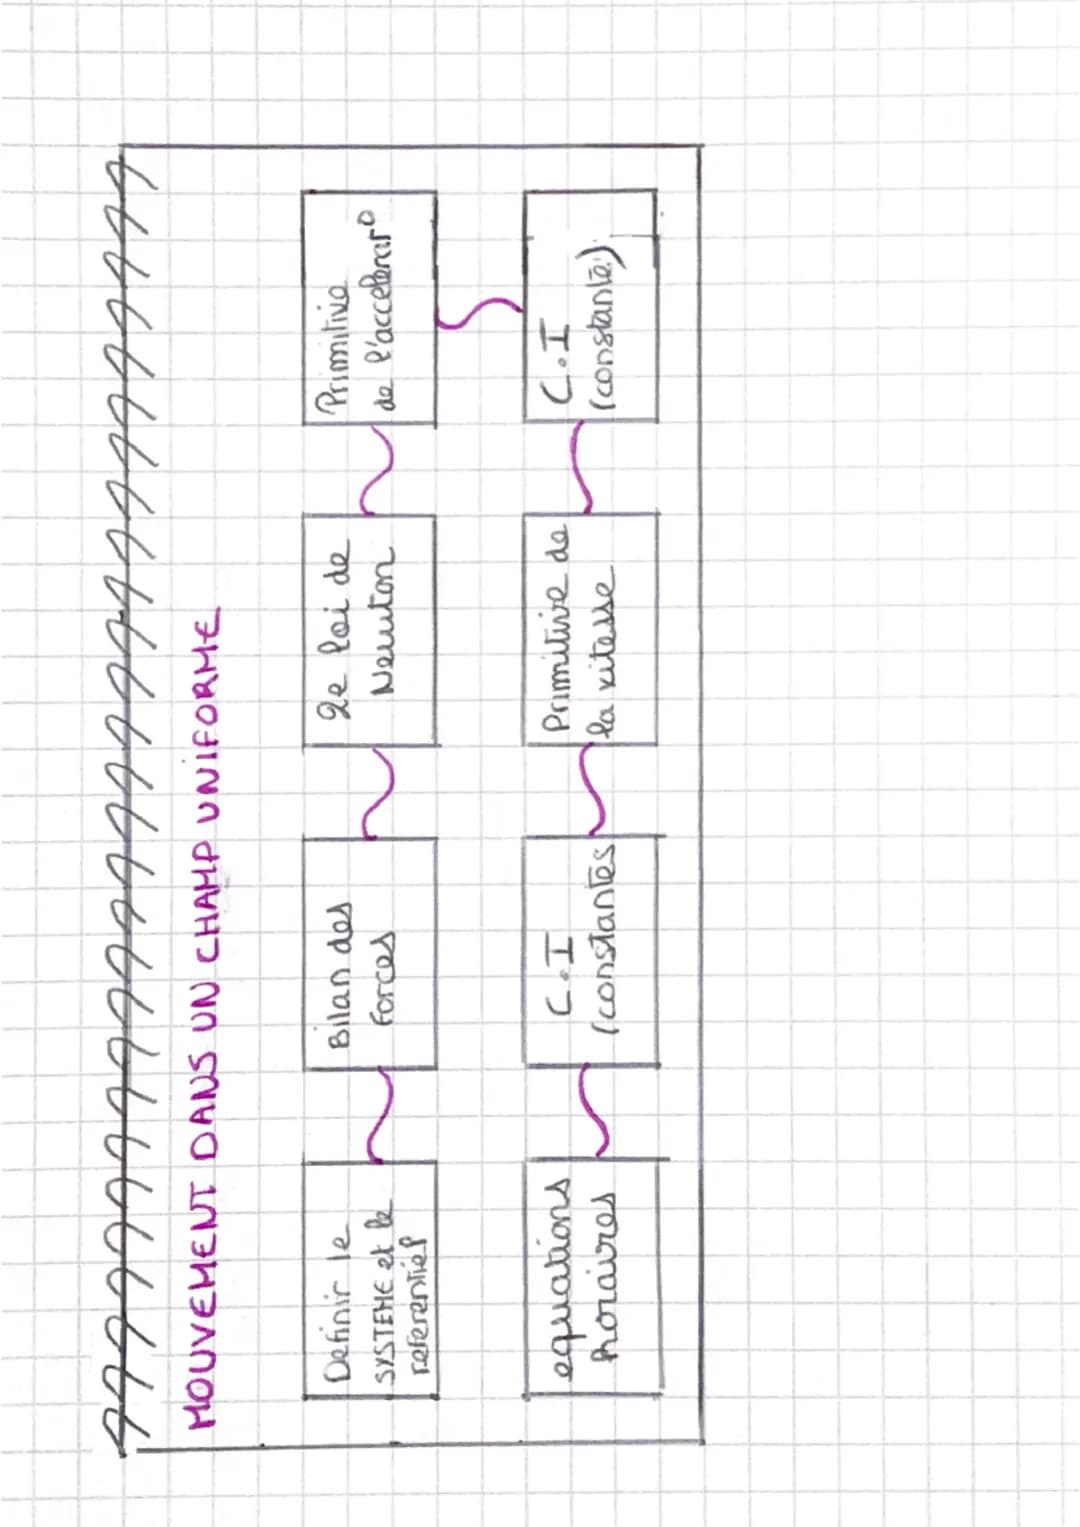 MOUVEMENT DANS UN CHAMP UNIFORME
Definir le
SYSTEME et le
referentiel
Bilan des
Forces
2e loi de
Newton
Primitive
de l'accelerat°
C.I
(constante)
Primitive de
la vitesse
C.I
(constantes
equations
horaires